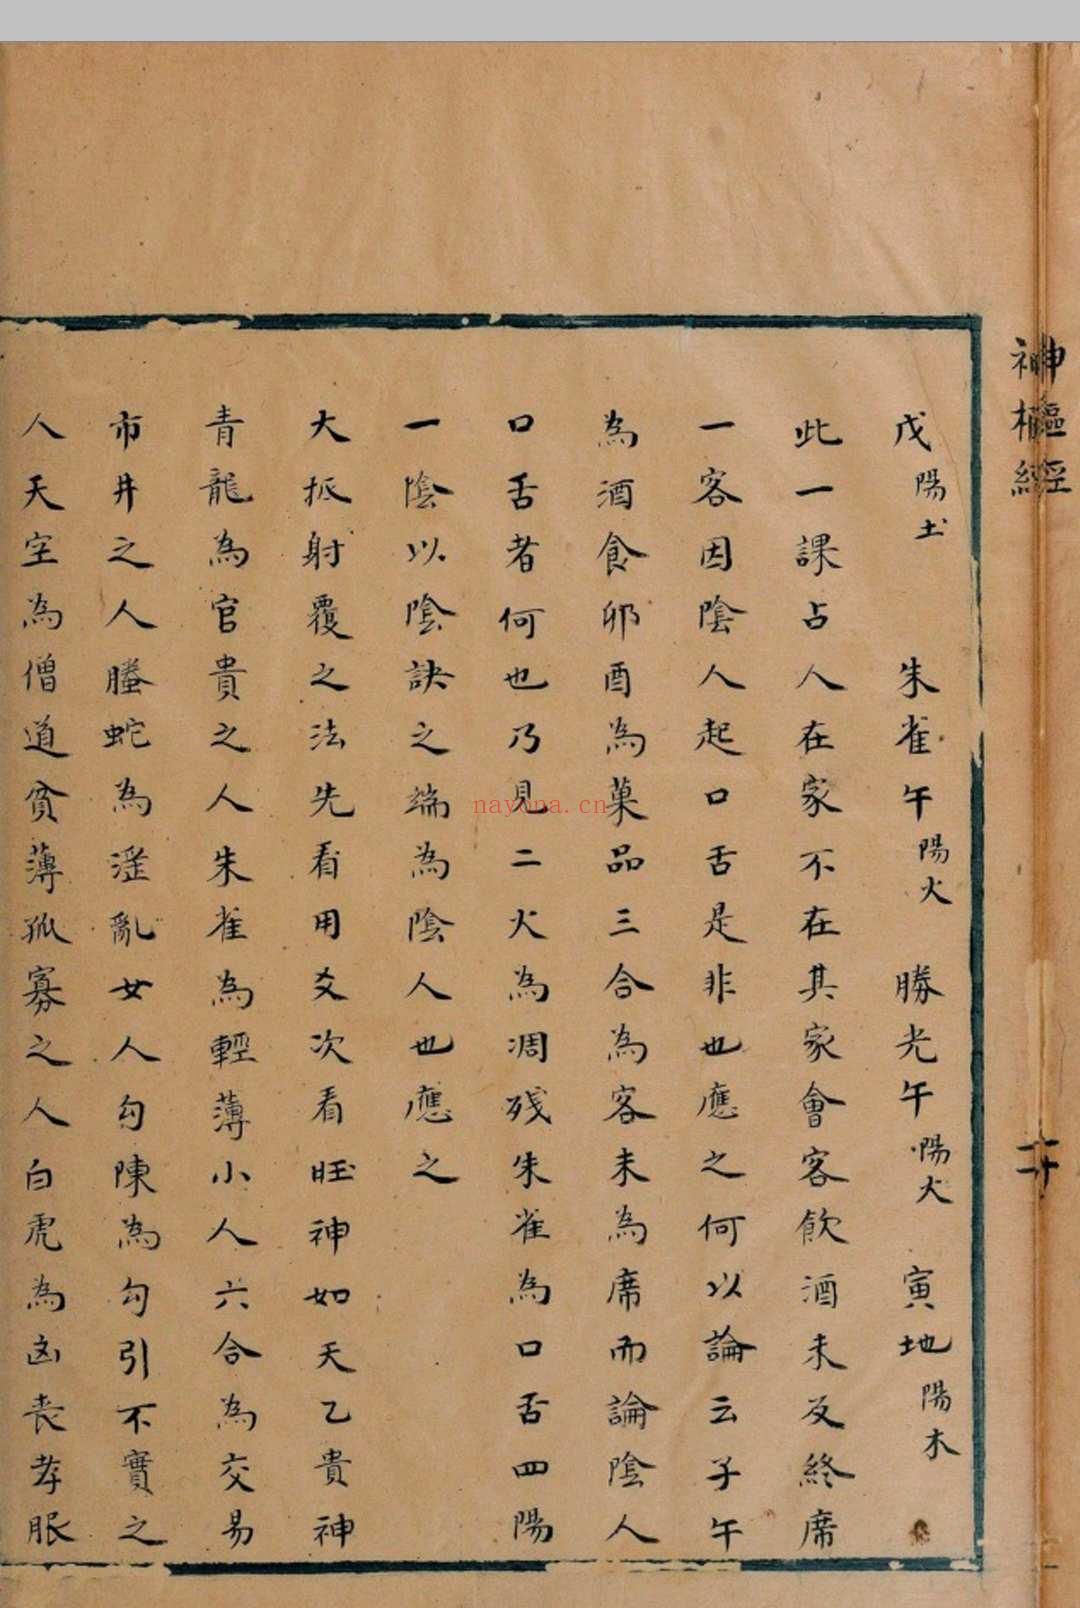 神樞經
二十
戊陽土 朱雀午陽火 勝光午陽火 寅地陽木
此一課占人在家不在其家會客飲酒未反終席
一客因陰人起口舌是非也應之何以論云子午
為酒食卯酉為菓品三合為客未為席而論陰人
口舌者何也乃見二火為凋殘朱雀為口舌四陽
一陰以陰訣之端為陰人也應之
大抵射覆之法先看用爻次看旺神如天乙貴神
青龍為官貴之人朱雀為輕薄小人六合為交易
市井之人螣蛇為淫亂女人勾陳為勾引不實之
人天空為僧道貧薄孤寡之人白虎為凶喪孝服
nayona.cn